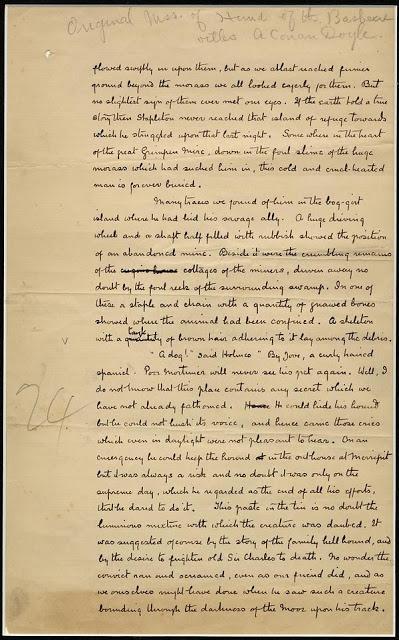 Original Mss. of Hound of the Basker
villes A Conan Doyle.
flowed swiftly in upon them, but as we at last reached firmer
ground beyond the morass we all looked eagerly for them. But
no slightest sign of them ever met our eyes. If the earth told a true
story then Stapleton never reached that island of refuge towards
which he struggled upon that last night. Some where in the heart
of the great Grimpen Mire, down in the foul slime of the huge
morass which had sucked him in, this cold and cruel-hearted
man is for ever buried.
Many traces we found of him in the bog-girt
island where he had hid his savage ally. A huge driving
wheel and a shaft half filled with rubbish showed the position
of an abandoned mine. Beside it were the crumbling remains
of the cottages of the miners, driven away no
doubt by the foul reek of the surrounding swamp. In one of
these a staple and chain with a quantity of gnawed bones
showed where the animal had been confined. A skeleton
tangle
v
with a of brown hair adhering to it lay among the debris.
"A dog!" said Holmes "By Jove, a curly haired
spaniel. Poor Mortimer will never see his pet again. Well, I
do not know that this place contains any secret which we
24.
have not already fathomed. He could hide his hound
but he could not hush its voice, and hence came those cries
which even in daylight were not pleasant to hear. On an
emergency he could keep the hound in the outhouse at Merripit
but it was always a risk and no doubt it was only on the
supreme day, which he regarded as the end of all his efforts,
that he dared to do it. This paste in the tin is no doubt the
luminous mixture with which the creature was daubed. It
was suggested of course by the story of the family hell hound, and
by the desire to frighten old Sir Charles to death. No wonder the
convict ran and screamed, even as our friend did, and as
we ourselves might have done when he saw such a creature
bounding through the darkness of the Moor upon his track.